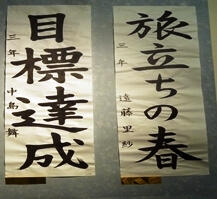 旅立ちの春
三年 遠藤里紗
目標達成
三年 中島